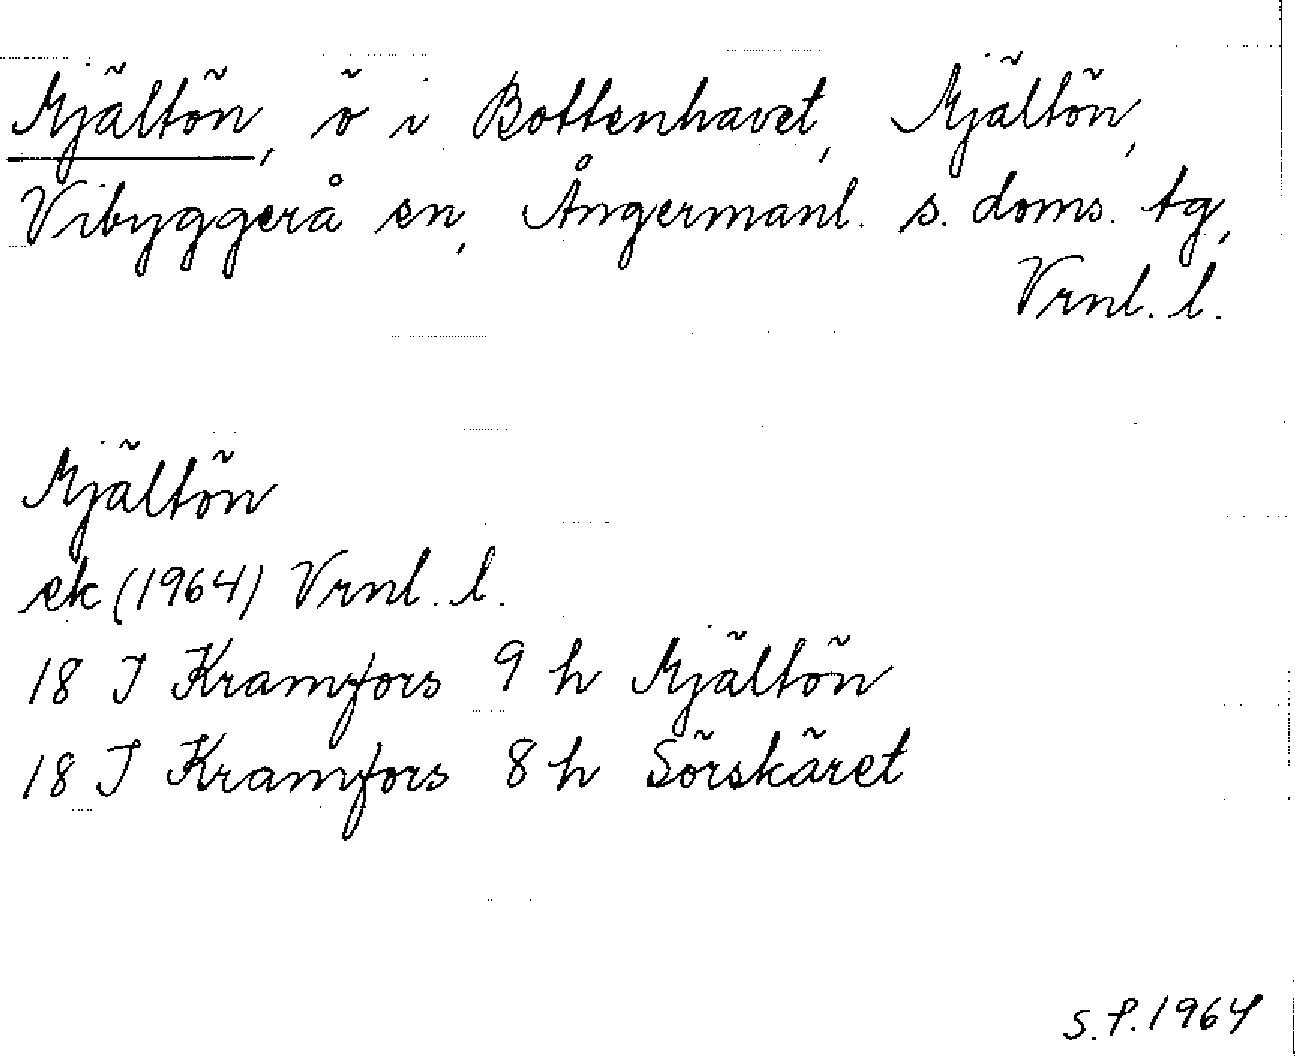 Mjältön, ö i Bottenhavet, Mjältön,
Vibyggerå sn, Ångermanl. s. doms. tg,
Vrnl. l.
Mjältön
ek (1964) Vrnl. l.
18 I Kramfors 9 h Mjältön
18 I Kramfors 8 h Sörskäret
S.P. 1964